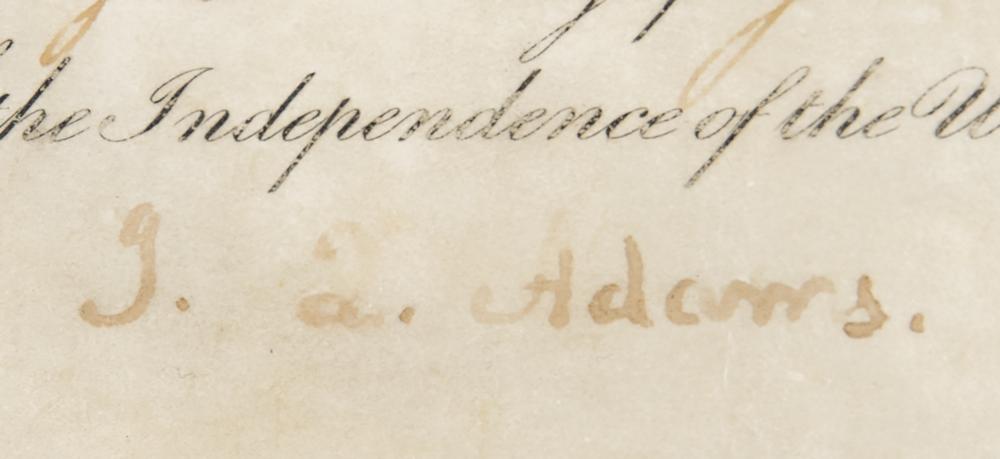 the Independence of the
J. Q. Adams.